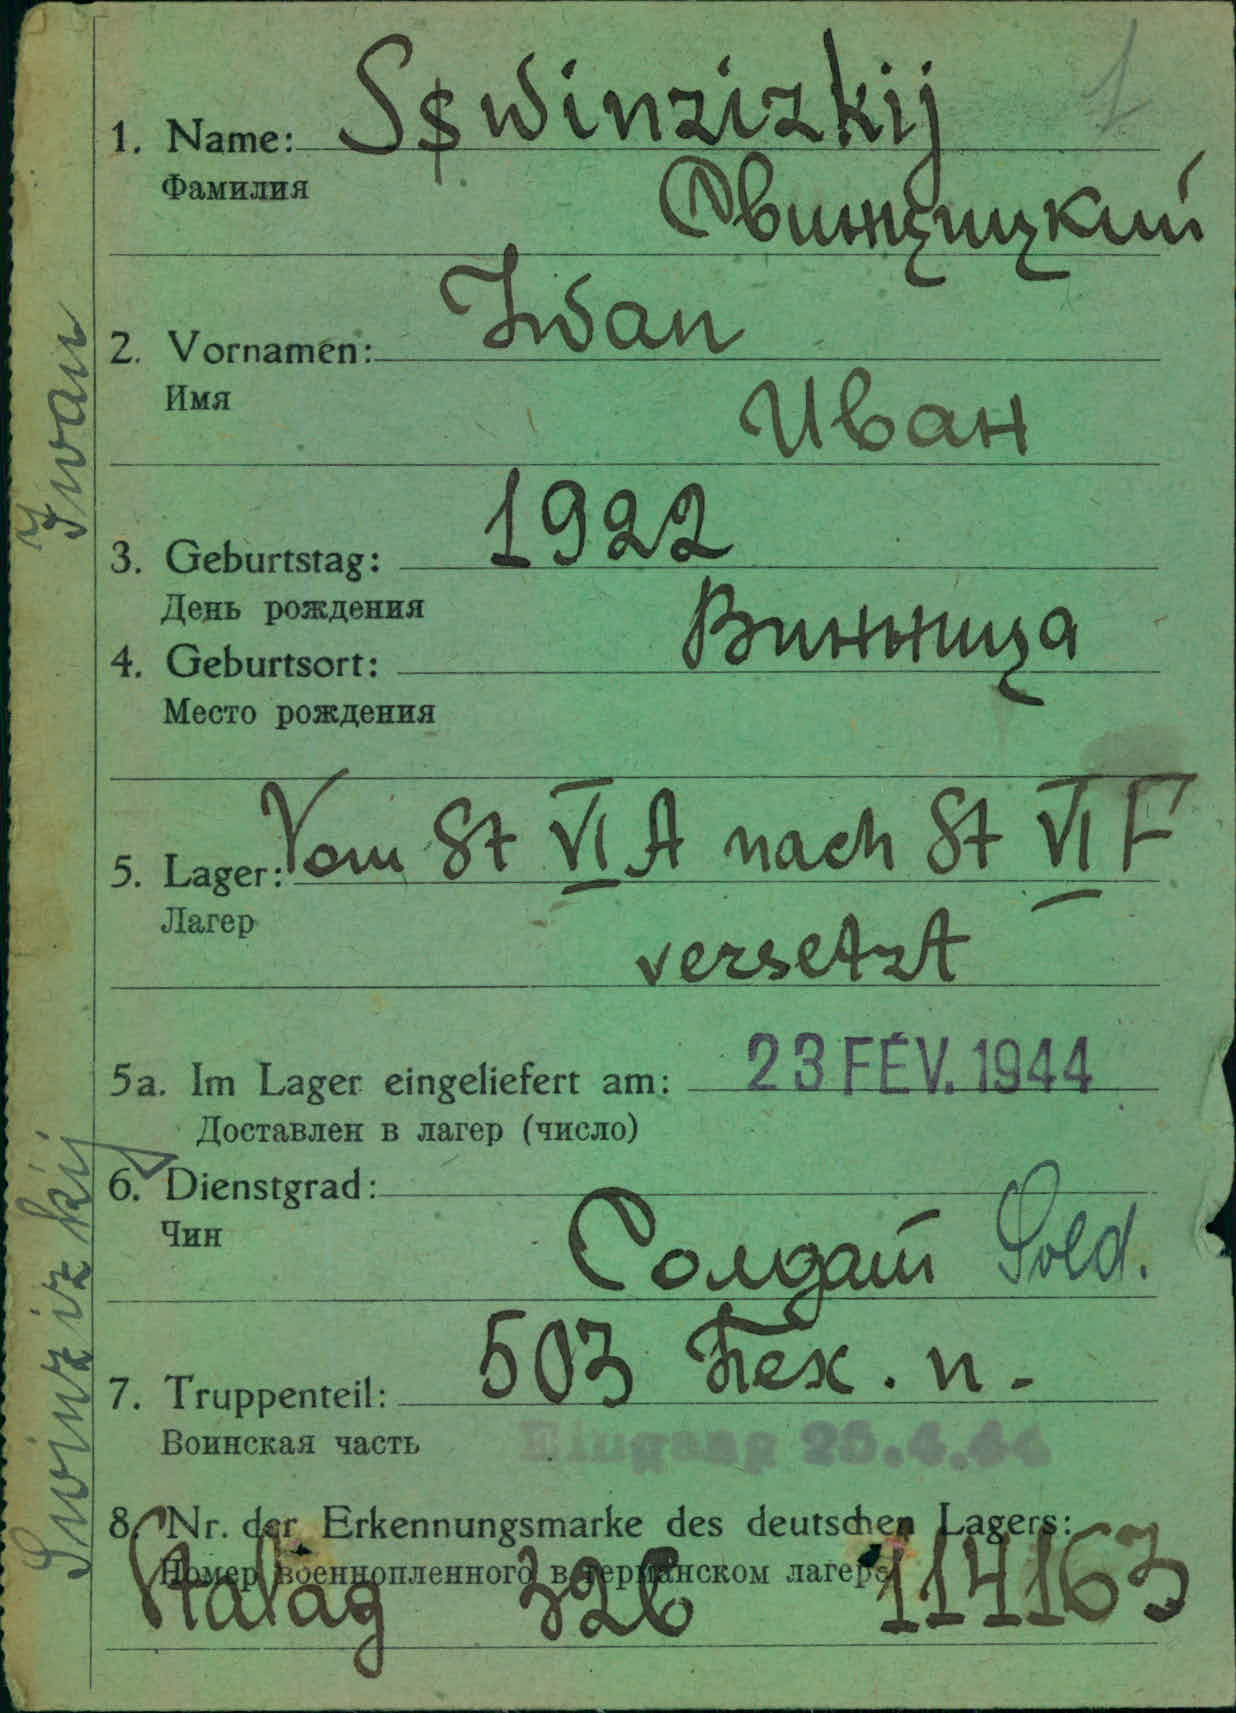 1
1. Name: Sswinzizkij
Фамилия
Свинцицкий
2. Vornamen: Iwan
Имя
Иван
3. Geburtstag: 1922
День рождения
4. Geburtsort: Винница
Место рождения
5. Lager: Vom St VI A nach St VI F
Лагер
versetzt
5a. Im Lager eingeliefert am: 23 FÉV. 1944
Доставлен в лагер (число)
6. Dienstgrad:
Чин
Солдат Sold.
7. Truppenteil: 503 тех. п.
Воинская часть
Eingang 25.4.44
8. Nr. der Erkennungsmarke des deutschen Lagers:
Номер военнопленного в германском лагере
Stalag 326 114163
Swinzizkij Iwan